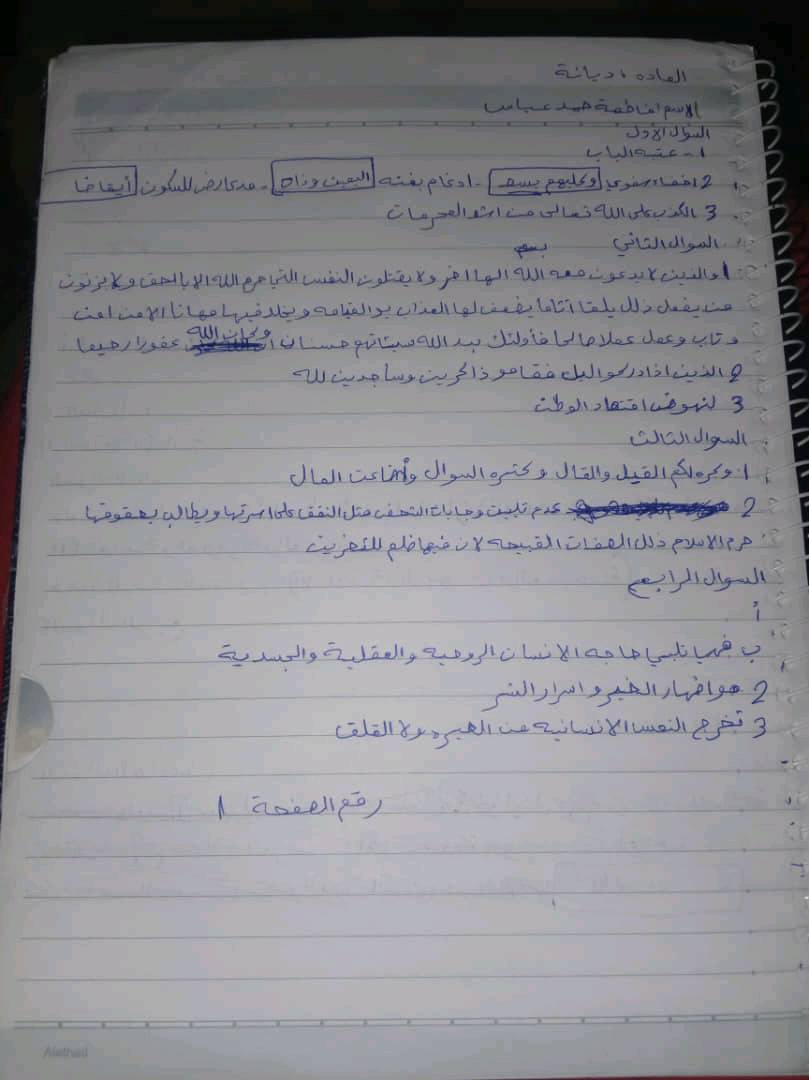 المادة ، ديانة
الاسم فاطمة حمد عباس
السؤال الاول
1 - عتبه الباب
2 اخفاء شفوي وكلبهم بسط - ادغام بغنه اليمين وذات - مد عارض للسكون أيقاضا
3 الكذب على الله تعالى من اشد المحرمات
السؤال الثاني بسم
1 والذين لا يدعون معه الله الها اخر ولا يقتلون النفس التي حرم الله الا بالحق ولا يزنون
من يفعل ذلك يلقا اثاما يضعف لها العذاب يو القيامه ويخلد فيها مهانا الا من امن
و تاب وعمل عملا صالحا فأولئك يبد الله سيئاتهم حسنات وكان الله غفورا رحيما
2 الذين اذا الليل فقامو ذاكرين وساجدين لله
3 لنهوض اقتصاد الوطن
السؤال الثالث
1 وكره لكم القيل والقال و كثره السوال وأضاعت المال
2 عدم تلبيت وجابات مثل النفق على اسرتها ويطالب بحقوقها
حرم الاسلام ذلك الصفات القبيحه لان فيها ظلم للأخرين
السؤال الرابع
أ
ب فهيا تلبي حاجه الانسان الروحيه والعقلية والجسدية
2 هو اضهار الخير و اسرار الشر
3 تخرج النفس الانسانيه من الحيره ولا القلق
رقم الصفحة 1
Alethad